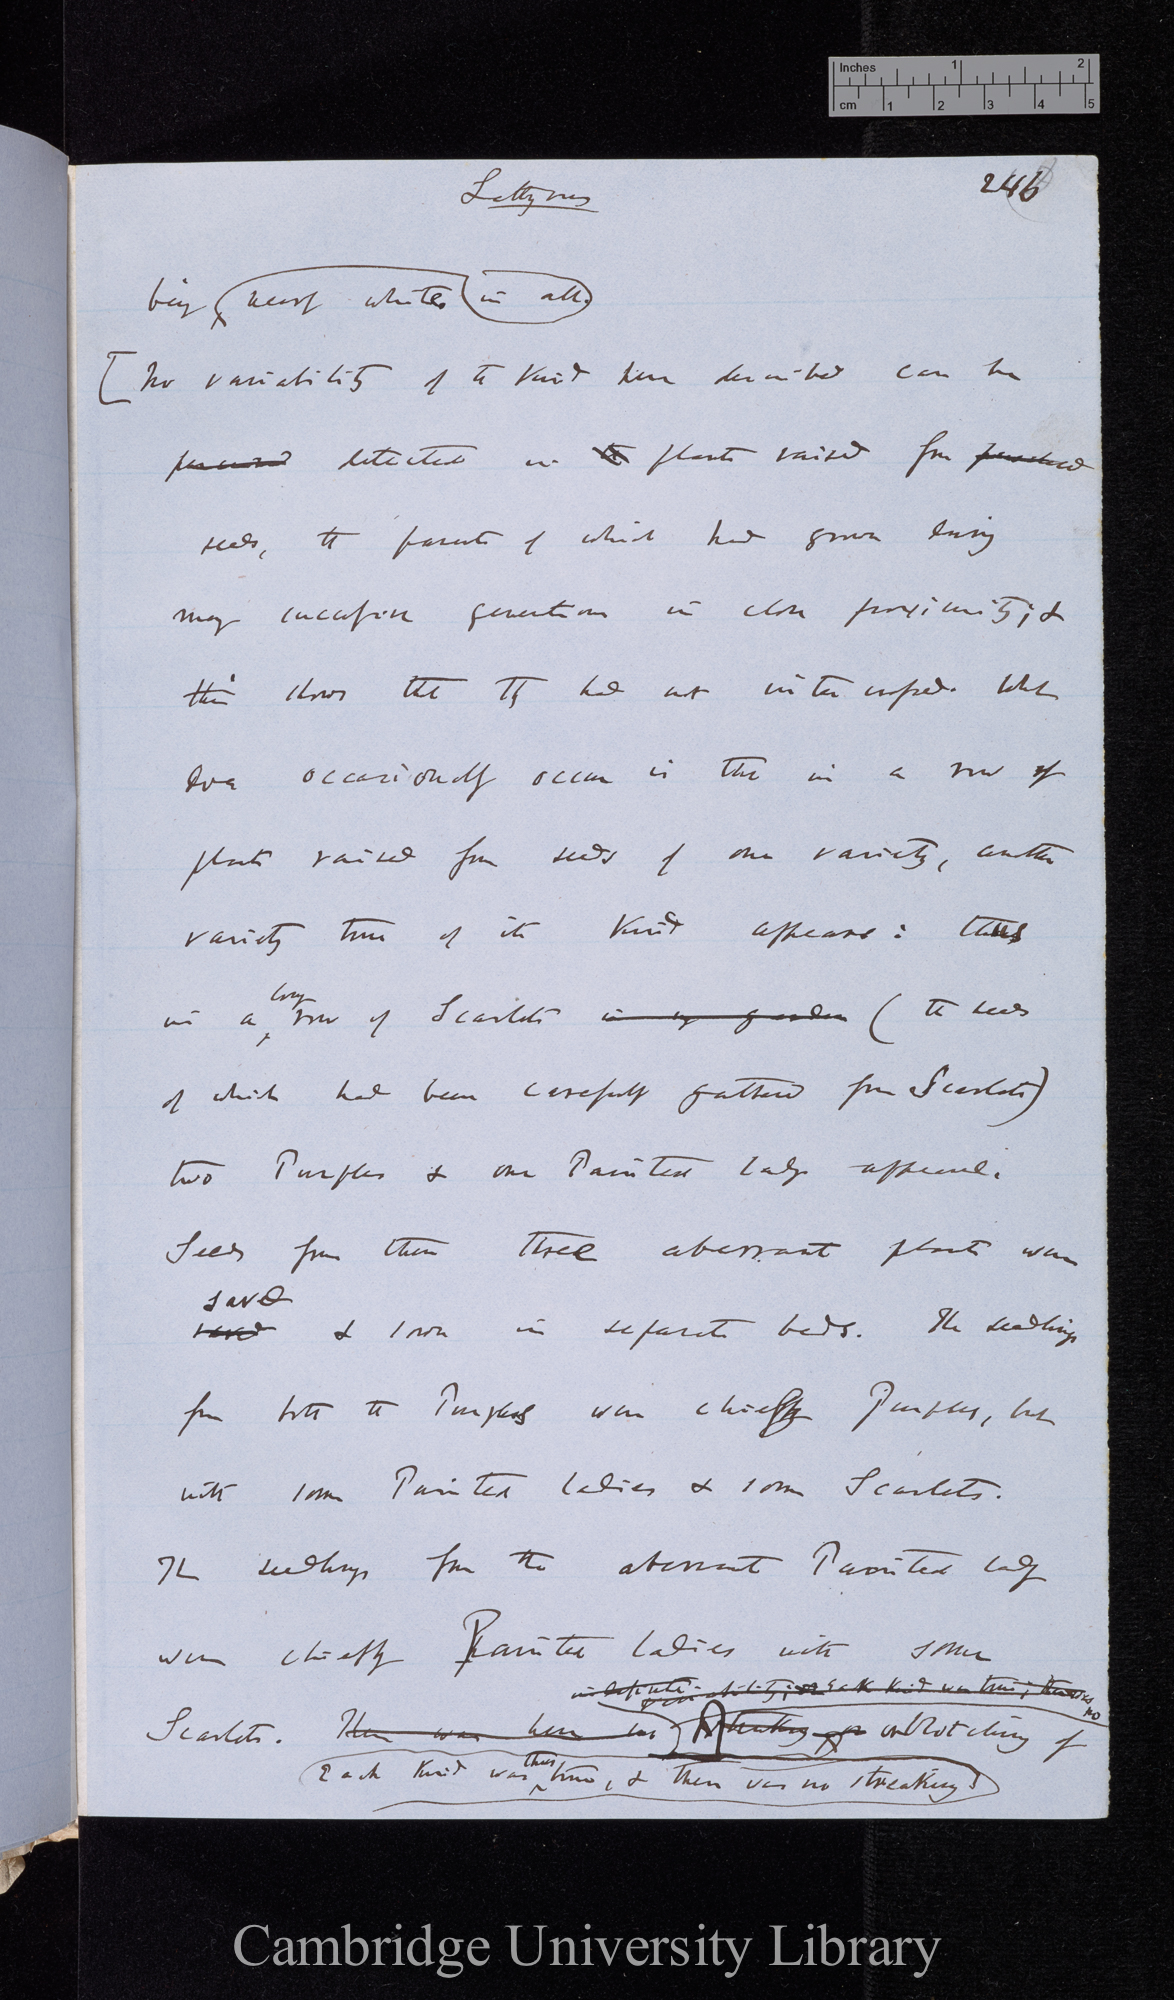 Inches 1 2
cm 1 2 3 4 5
Lathyrus
246
being nearly whites in all.
[No variability of the kind here described can be
perceived detected in the plants raised from purchased
seeds, the parents of which had grown during
many successive generations in close proximity; &
this shows that they had not intercrossed. What
does occasionally occur is that in a row of
plants raised from seeds of one variety, another
variety true of its kind appears: thus
long
in a row of Scarlets in my garden (the seeds
of which had been carefully gathered from Scarlets)
two Purples & one Painted lady appeared.
Seeds from these three aberrant plants were
saved
& sown in separate beds. The seedlings
from both the Purples were chiefly Purples, but
with some Painted ladies & some Scarlets.
The seedlings from the aberrant Painted lady
were chiefly Painted ladies with some
variability; each kind was true; there was no
Scarlets. There was here no or blotching of
Each kind was thus true, & there was no streaking
Cambridge University Library